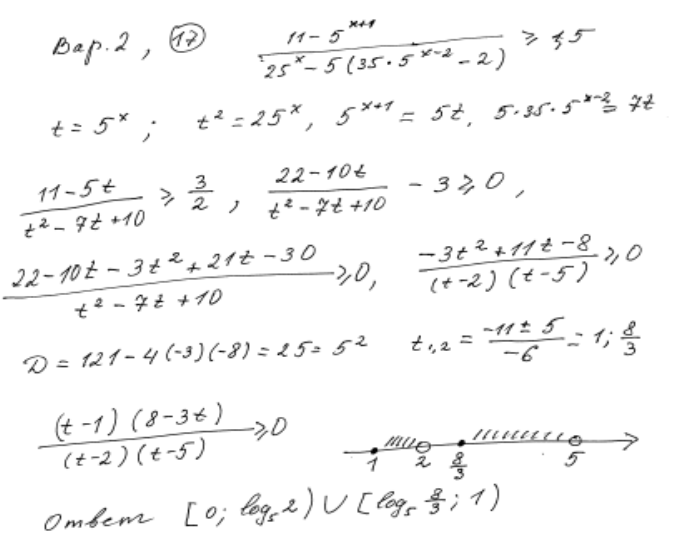 Вар. 2, (17) (11 - 5^(x+1)) / (25^x - 5(35·5^(x-2) - 2)) ≥ 1,5
t = 5^x; t² = 25^x, 5^(x+1) = 5t, 5·35·5^(x-2) = 7t
(11 - 5t) / (t² - 7t + 10) ≥ 3/2, (22 - 10t) / (t² - 7t + 10) - 3 ≥ 0,
(22 - 10t - 3t² + 21t - 30) / (t² - 7t + 10) ≥ 0, (-3t² + 11t - 8) / ((t-2)(t-5)) ≥ 0
D = 121 - 4(-3)(-8) = 25 = 5² t₁,₂ = (-11 ± 5) / -6 = 1; 8/3
((t-1)(8-3t)) / ((t-2)(t-5)) ≥ 0
1 2 8/3 5
Ответ [0; log₅2) ∪ [log₅ 8/3; 1)